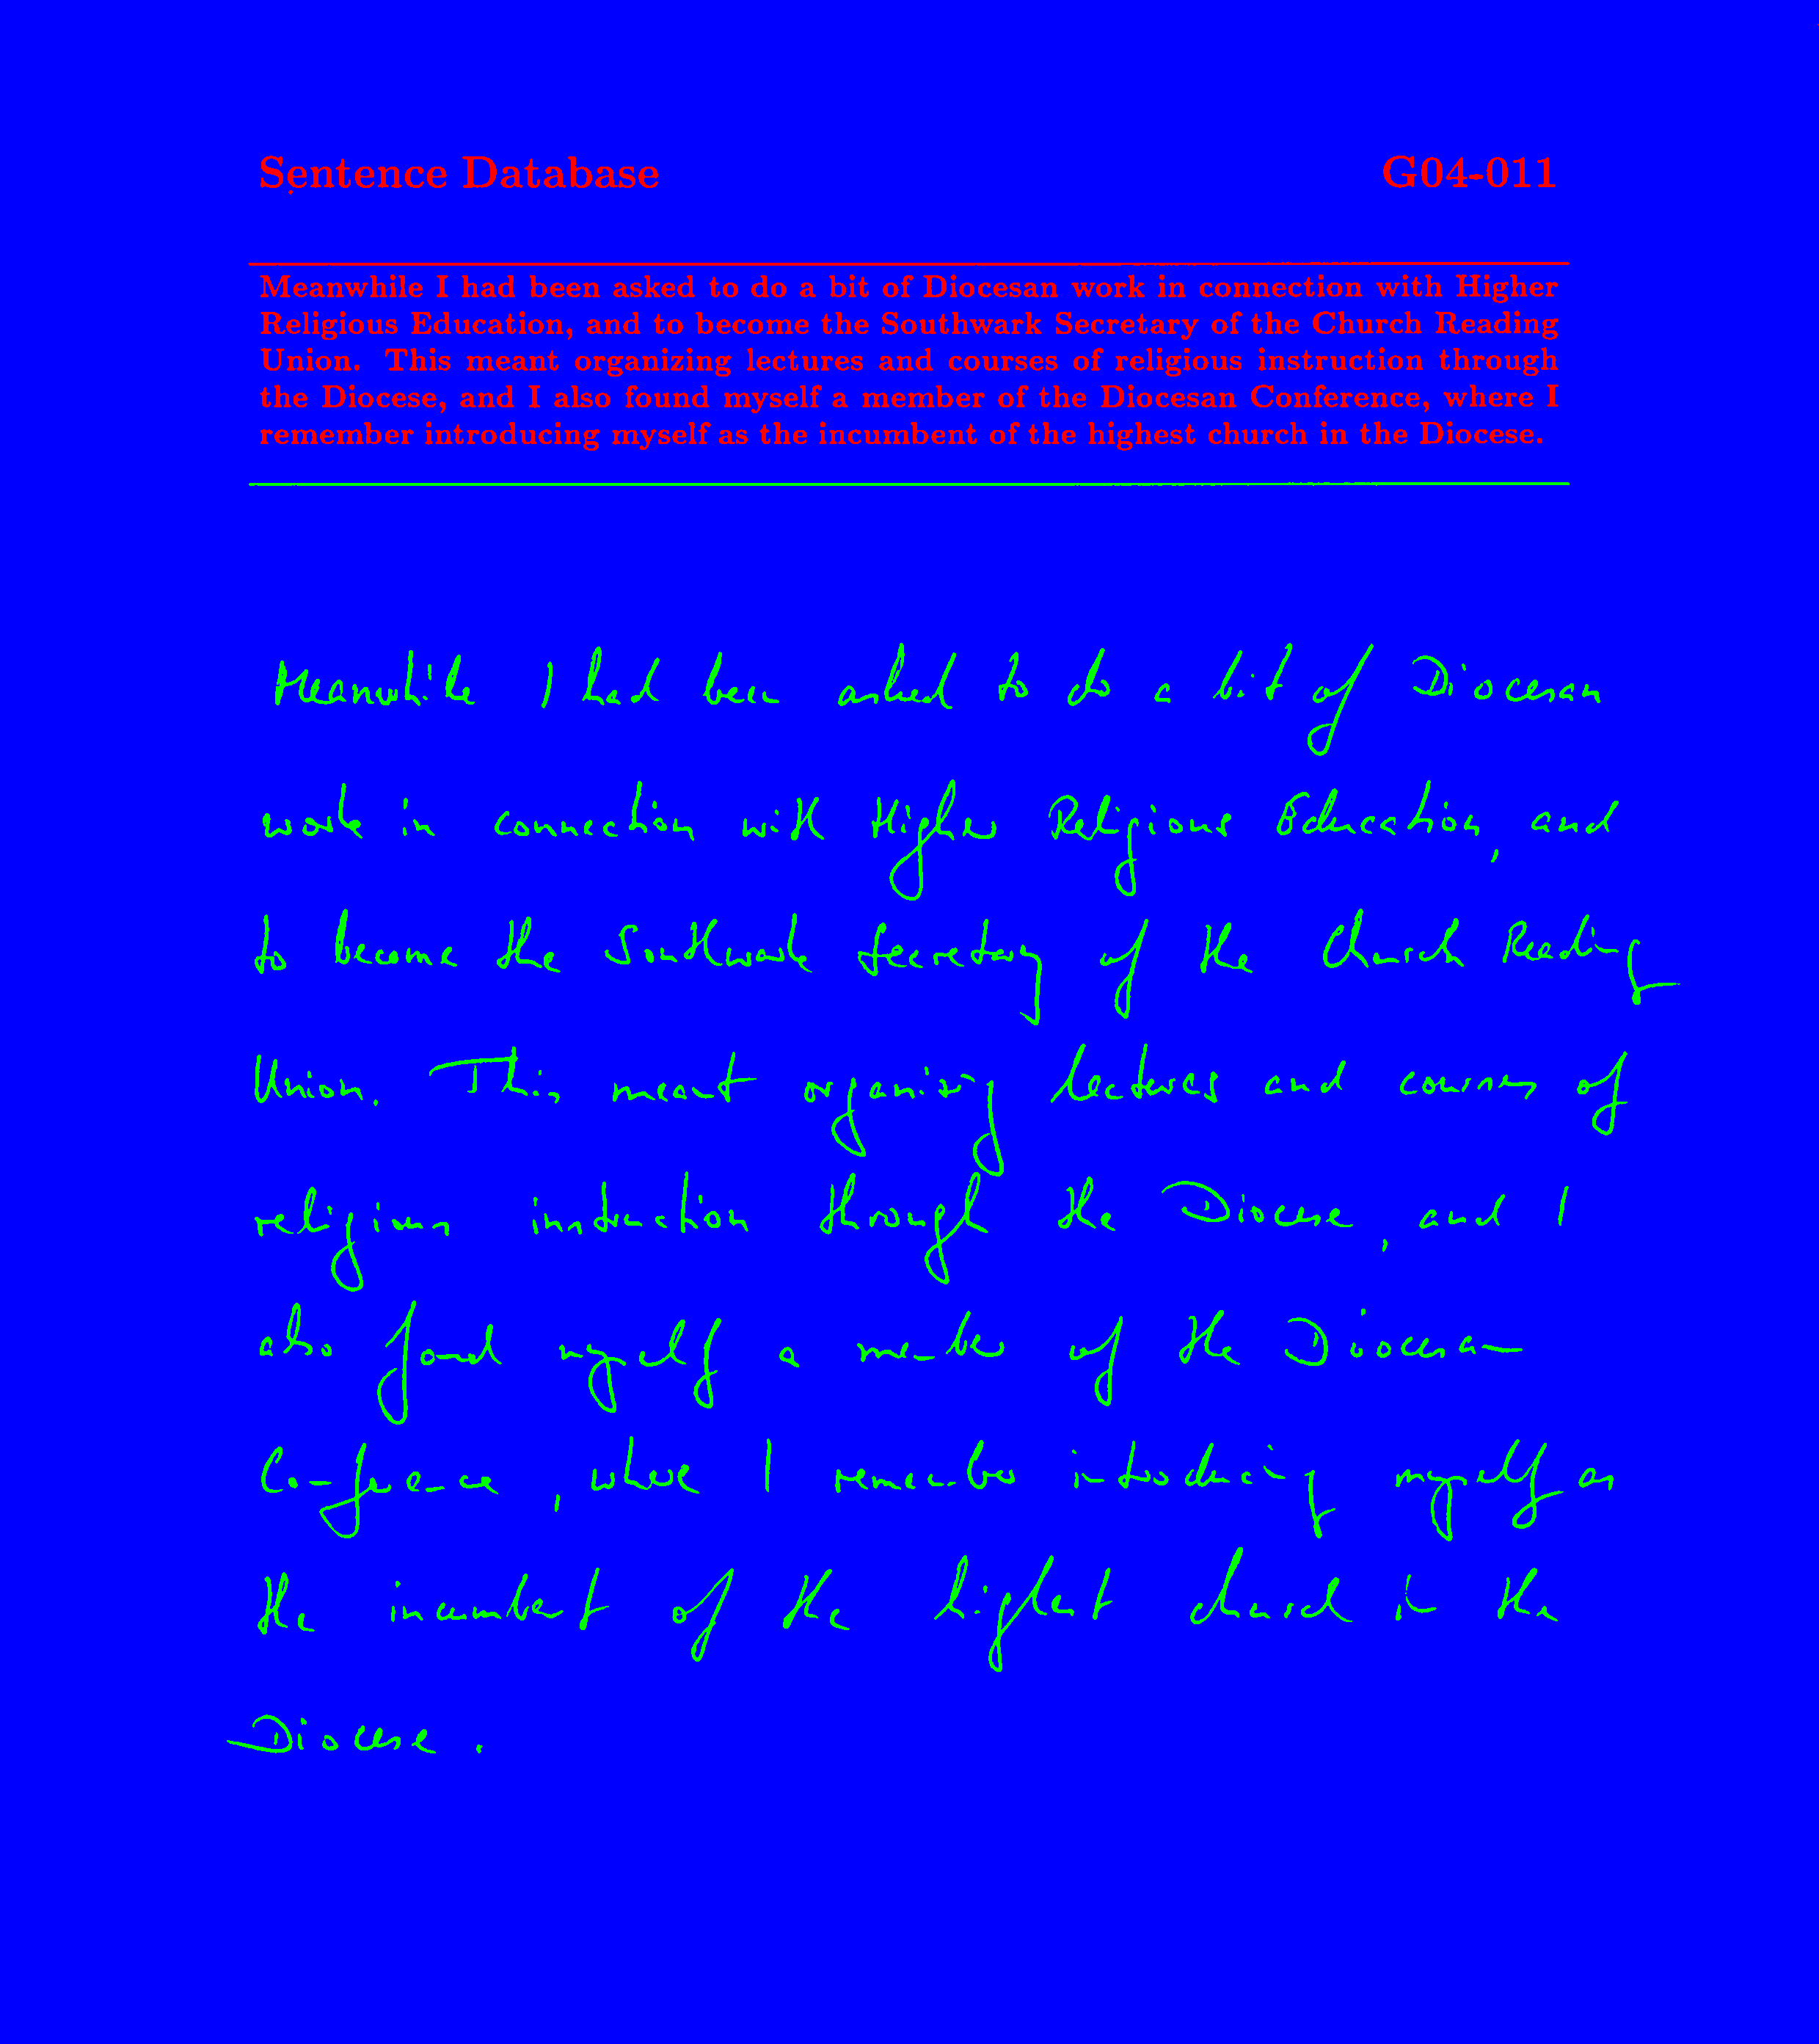 Sentence Database G04-011
Meanwhile I had been asked to do a bit of Diocesan work in connection with Higher
Religious Education, and to become the Southwark Secretary of the Church Reading
Union. This meant organizing lectures and courses of religious instruction through
the Diocese, and I also found myself a member of the Diocesan Conference, where I
remember introducing myself as the incumbent of the highest church in the Diocese.
Meanwhile I had been asked to do a bit of Diocesan
work in connection with Higher Religious Education, and
to become the Southwark Secretary of the Church Reading
Union. This meant organizing lectures and courses of
religious instruction through the Diocese, and I
also found myself a member of the Diocesan
Conference, where I remember introducing myself as
the incumbent of the highest church in the
Diocese.